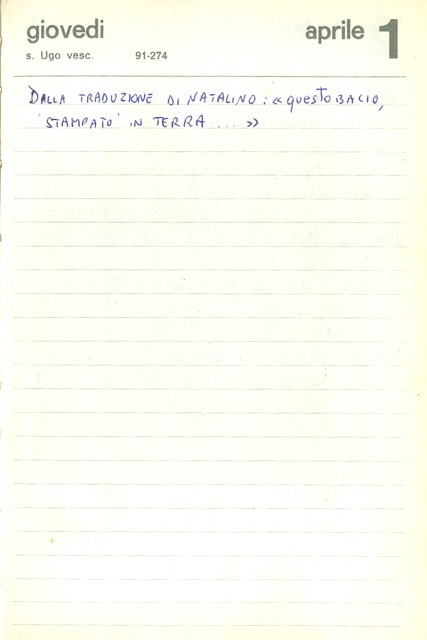 giovedi aprile 1
s. Ugo vesc. 91-274
DALLA TRADUZIONE DI NATALINO: «questo BACIO,
'STAMPATO' IN TERRA ... »